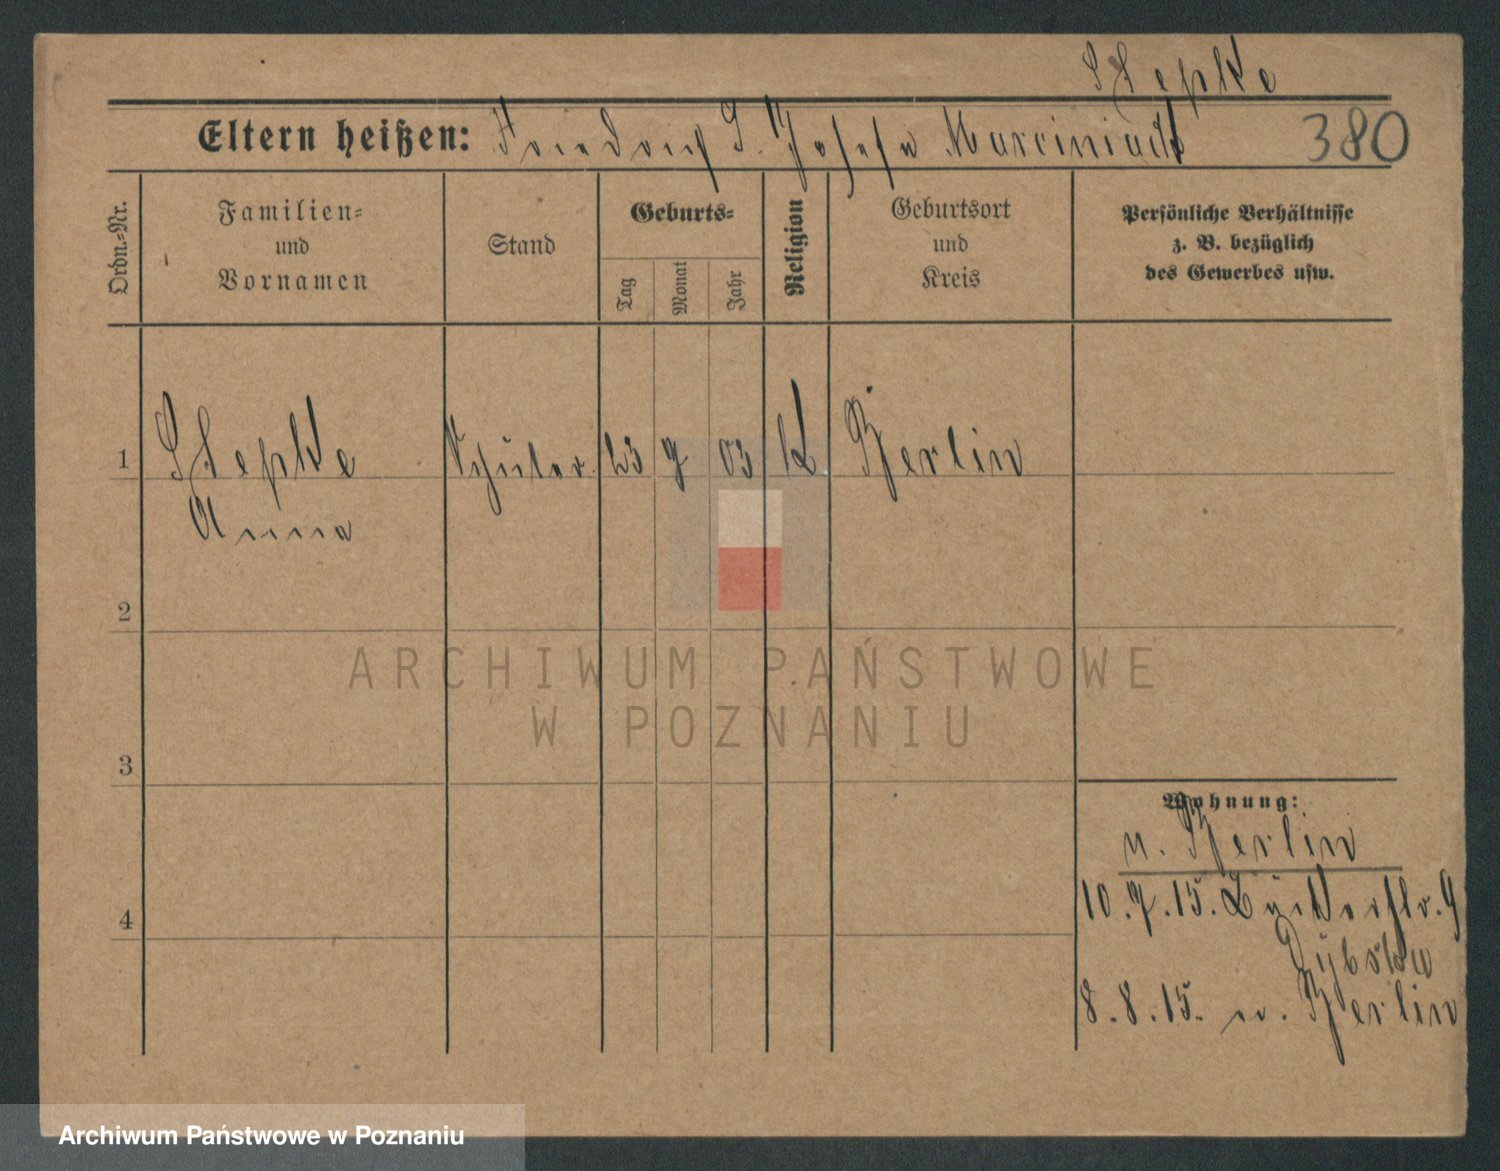 Stepke
Eltern heißen: Friedrich S. Josefa Marciniack 380
Ordn.=Nr.
Familien=
und
Vornamen
Stand
Geburts=
Tag
Monat
Jahr
Religion
Geburtsort
und
Kreis
Persönliche Verhältnisse
z. B. bezüglich
des Gewerbes usw.
1 Stepke Schüler. 23 9 03 k Berlin
Anna
2
3
4
Wohnung:
v. Berlin
10.7.15. Bäckerstr. 9
Dybska
8.8.15. n. Berlin
ARCHIWUM PAŃSTWOWE
W POZNANIU
Archiwum Państwowe w Poznaniu